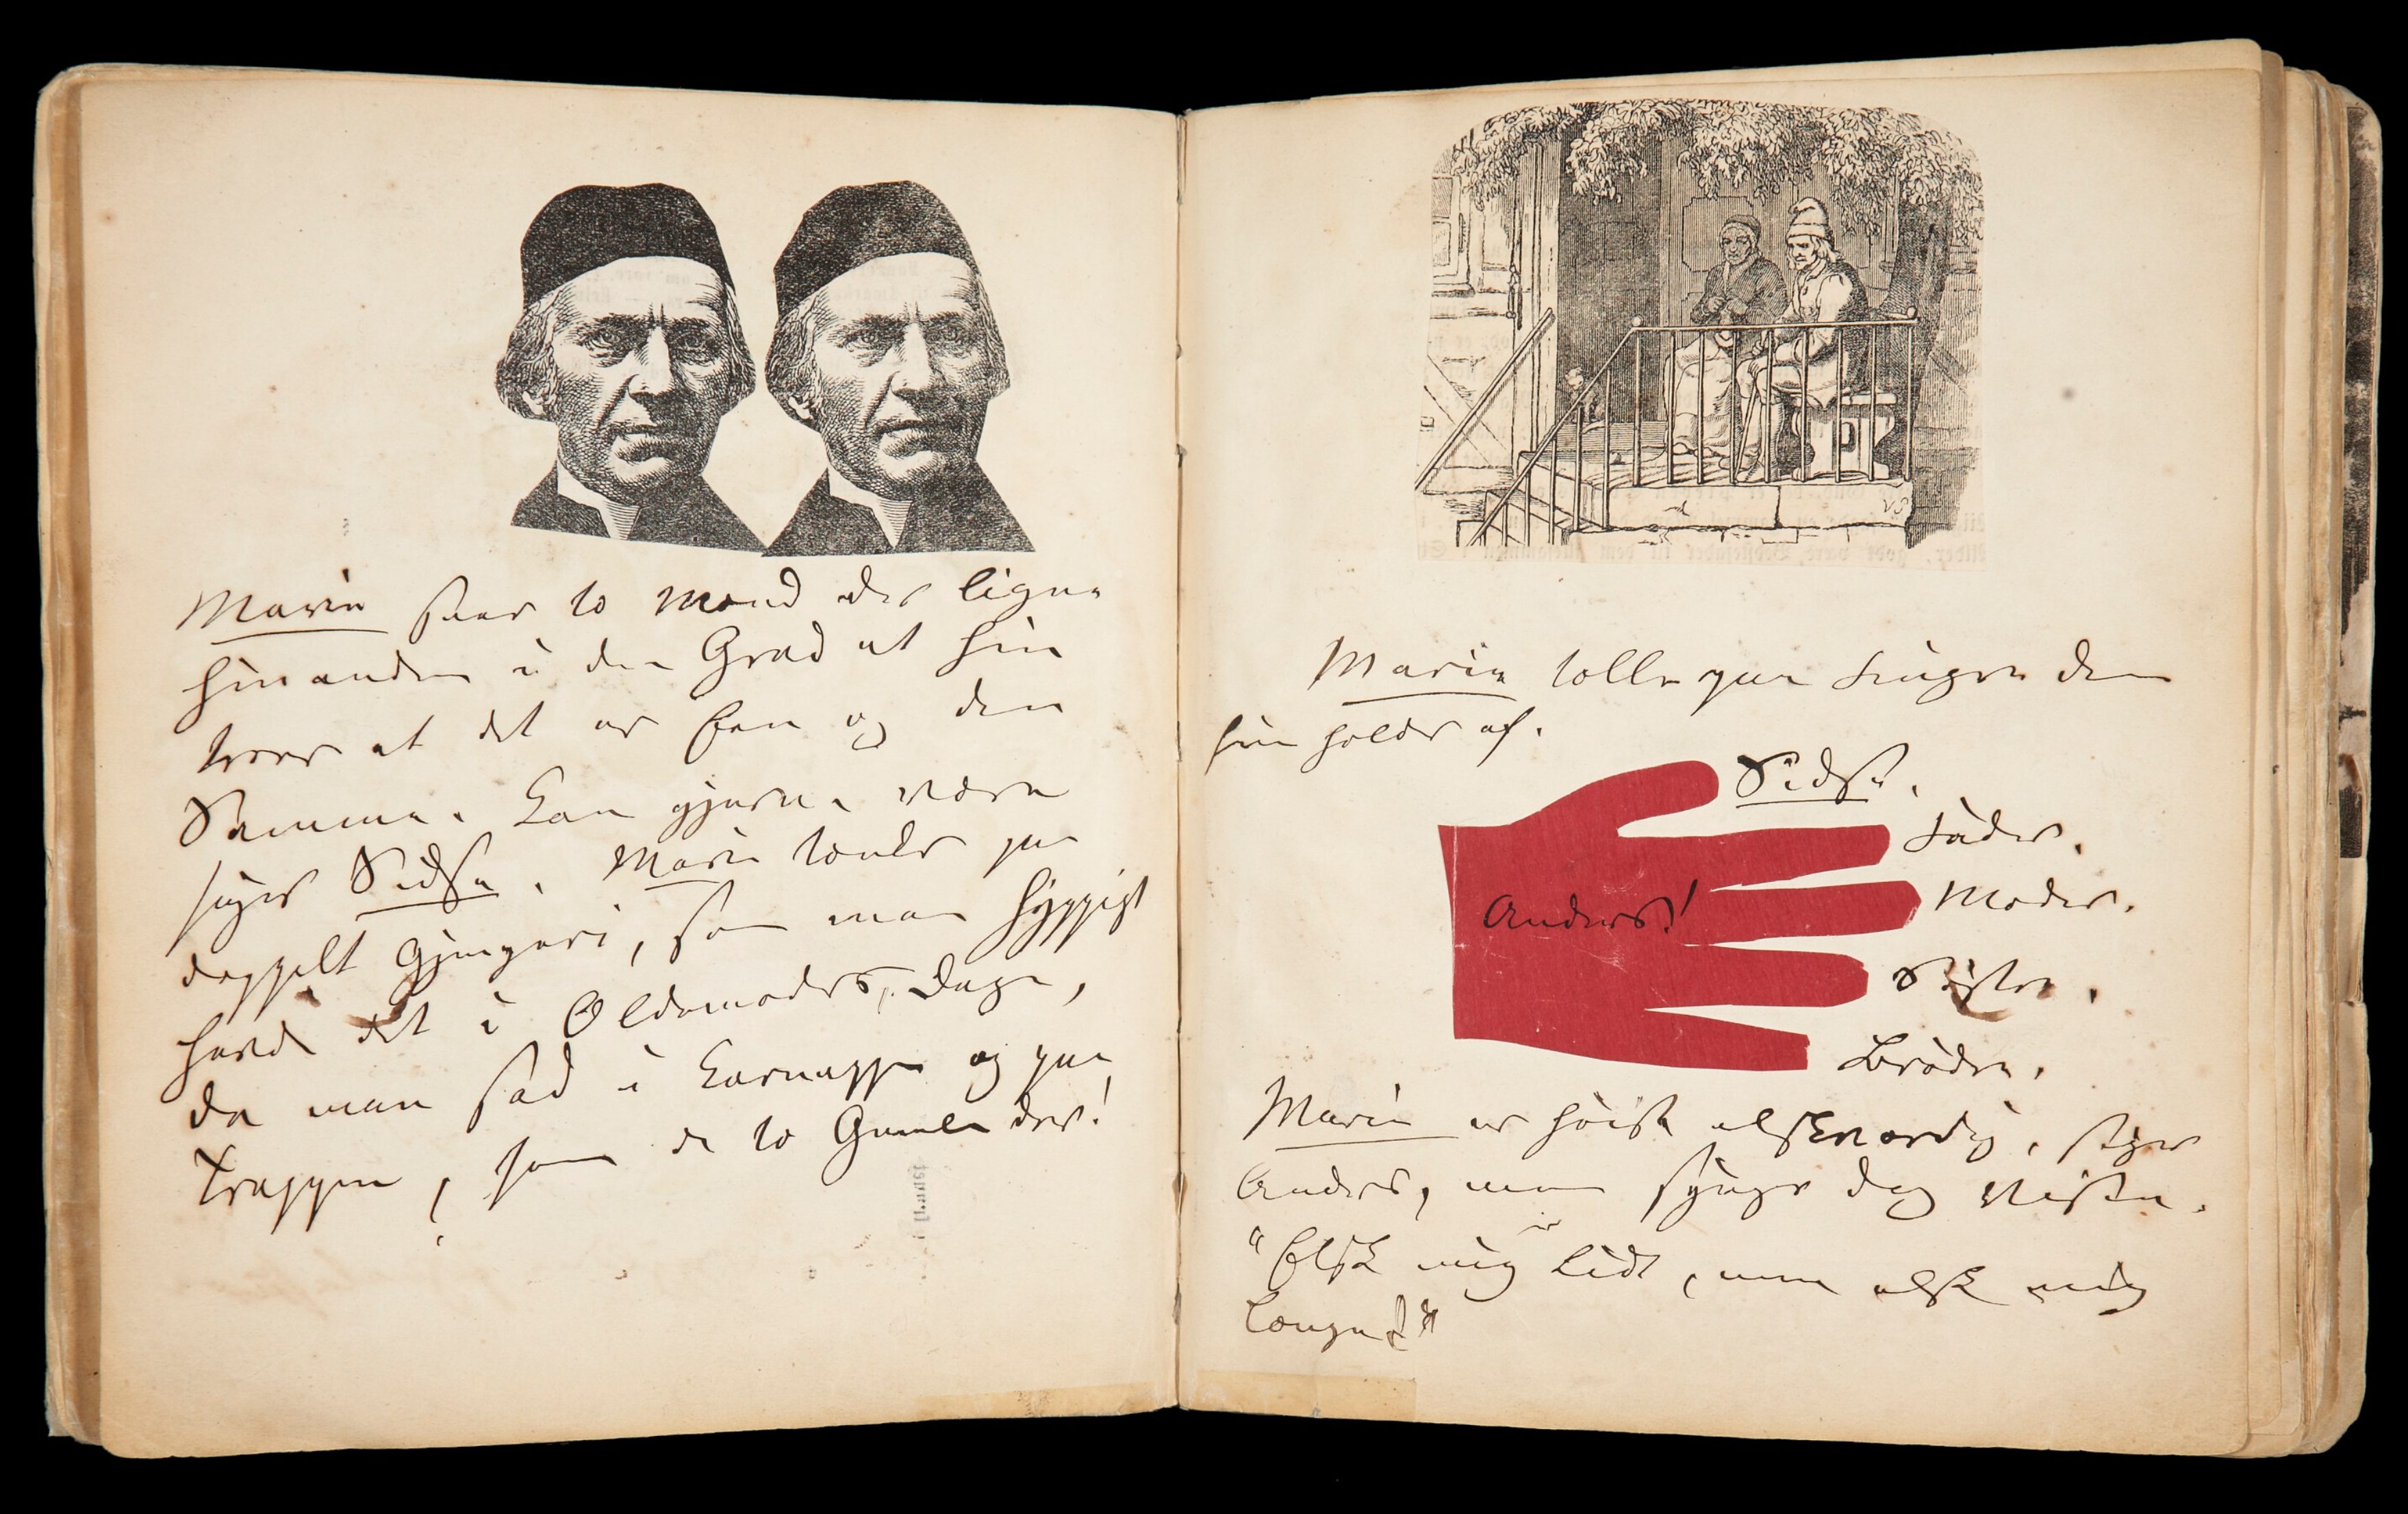 Marie saae to Mænd der ligne
hinanden i den Grad at hun
troer at det er Een og den
Samme. Kan gjerne være
siger Sidse. Marie tænker paa
doppelt Gjengeri, som man hyppigt
havde det i Oldemoders Dage,
da man sad i Karnappen og paa
Trappen, som de to Gamle der!
Marie tæller paa Fingre dem
hun holder af.
Sidse.
Fader.
Moder.
Anders!
Søster.
Brødre.
Marie er høist elskværdig, siger
Anders, men synger dog Visen.
"Elsk mig lidt, men elsk mig
længe!"